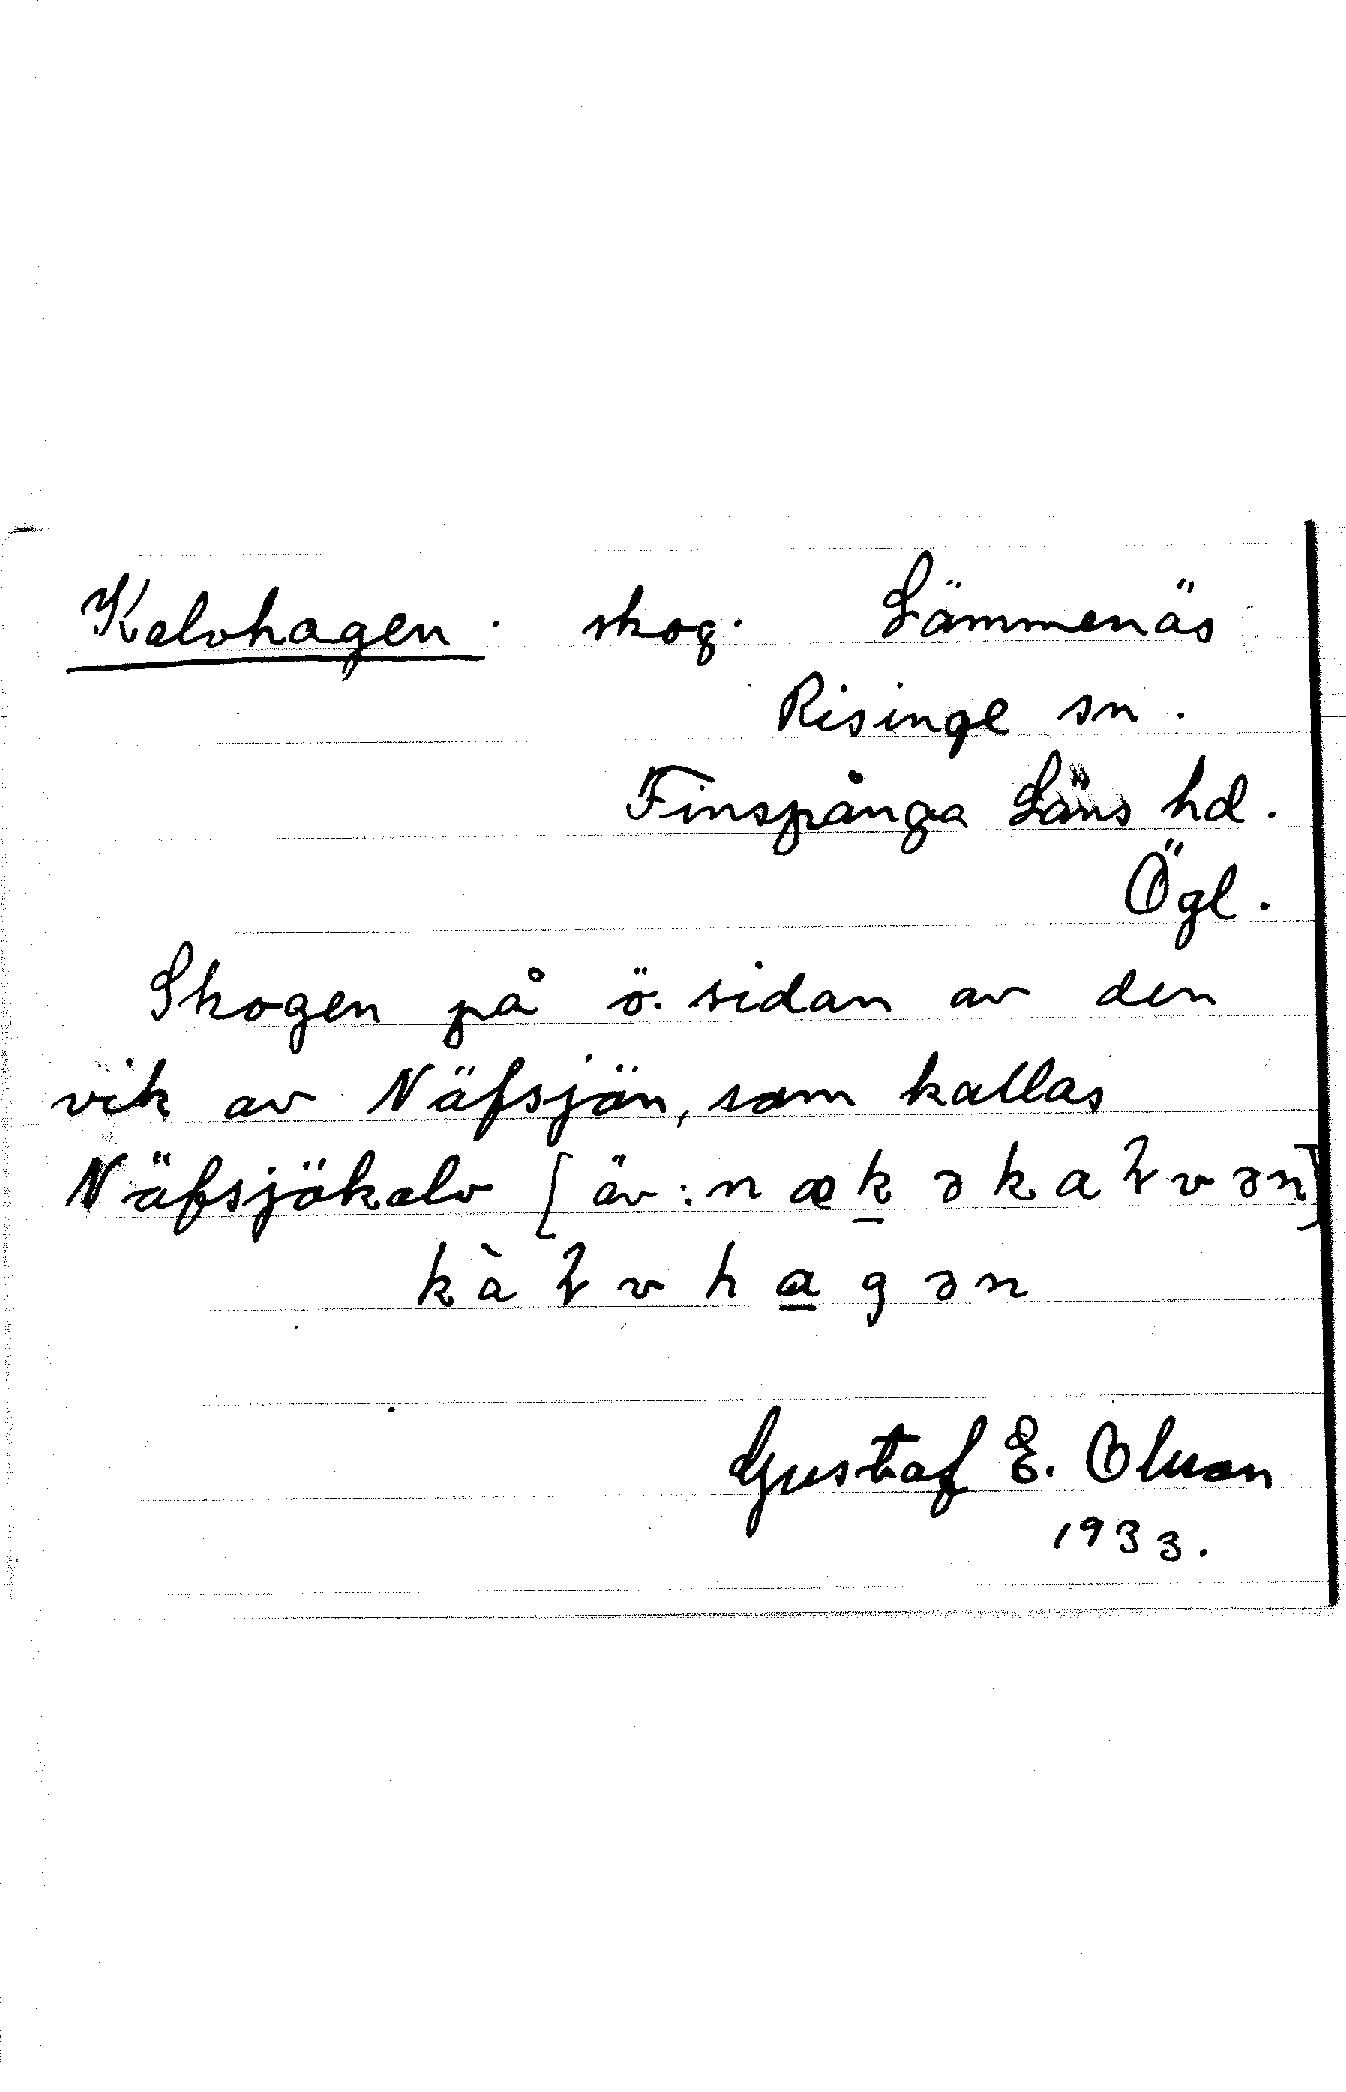 Kalvhagen. skog. Lämmenäs
Risinge sn.
Finspånga Läns hd.
Ögl.
Skogen på ö. sidan av den
vik av Näfsjön, som kallas
Näfsjökalv [äv: n æ k̲ ə k a ɫ v ə n]
k à ɫ v h a̲ g ə n
Gustaf E. Olsson
1933.